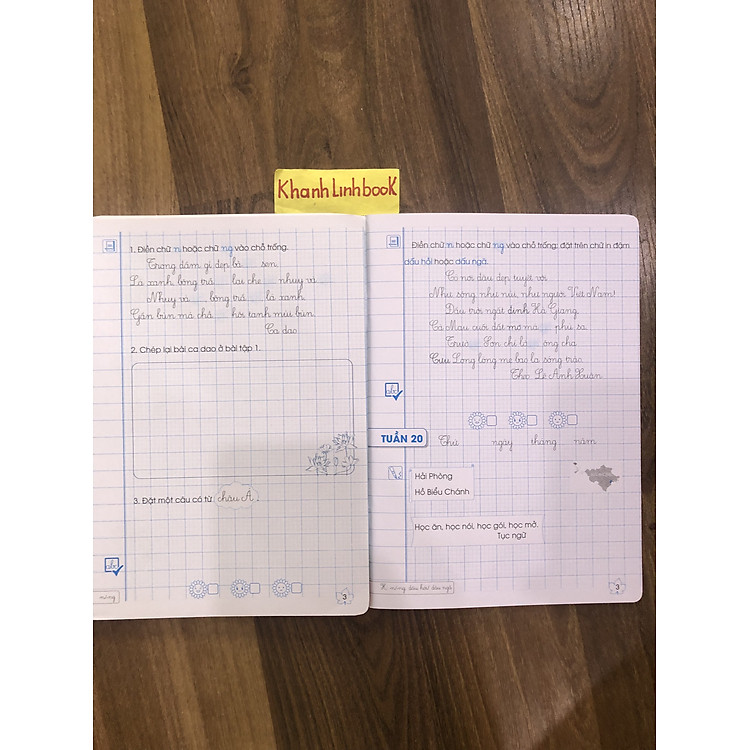 Khanh Linh book
1. Điền chữ n hoặc chữ ng vào chỗ trống.
Trong đầm gì đẹp bằ sen
Lá xanh bông trắ lại che nhụy và
Nhụy và bông trắ lá xanh
Gần bùn mà chẳ hôi tanh mùi bùn
Ca dao
2. Chép lại bài ca dao ở bài tập 1.
3. Đặt một câu có từ châu Á.
3
Điền chữ n hoặc chữ ng vào chỗ trống; đặt trên chữ in đậm
dấu hỏi hoặc dấu ngã.
Có nơi đâu đẹp tuyệt vời
Như sông như núi, như người Việt Nam!
Đầu trời ngất đỉnh Hà Giang
Cà Mau cuối đất mơ mà phù sa
Trườ Sơn chí lớ ông cha
Cửu Long lòng mẹ bao la sóng trào
Theo Lê Anh Xuân
TUẦN 20
Thứ ngày tháng năm
Hải Phòng
Hồ Biểu Chánh
Học ăn, học nói, học gói, học mở.
Tục ngữ
3